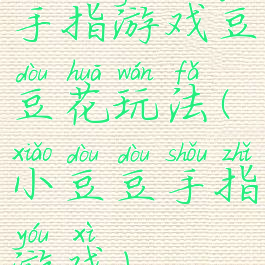 手指游戏豆
dòu huā wán fǎ
豆花玩法(
xiǎo dòu dòu shǒu zhǐ
小豆豆手指
yóu xì
游戏)